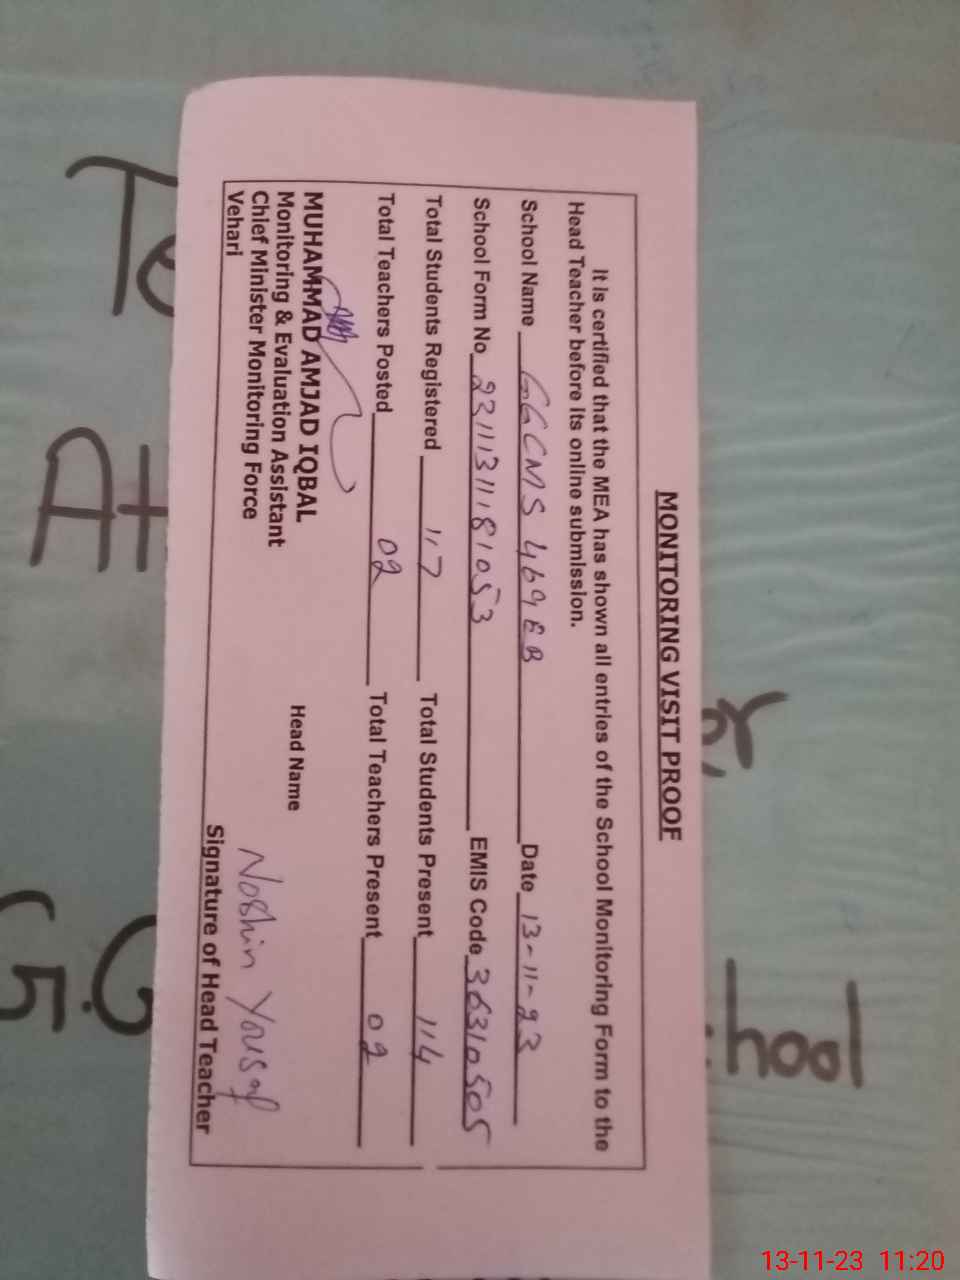 MONITORING VISIT PROOF
It is certified that the MEA has shown all entries of the School Monitoring Form to the
Head Teacher before its online submission.
School Name GGCMS 469EB Date 13-11-23
School Form No 231113111181053 EMIS Code 36310505
Total Students Registered 117 Total Students Present 114
Total Teachers Posted 02 Total Teachers Present 02
MUHAMMAD AMJAD IQBAL
Monitoring & Evaluation Assistant
Chief Minister Monitoring Force
Vehari
Head Name
Noshin Yousaf
Signature of Head Teacher
hool
Te
13-11-23 11:20